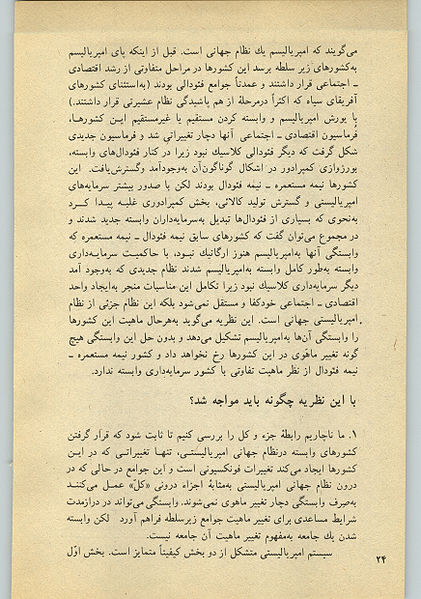 می‌گویند که امپریالیسم یك نظام جهانی است. قبل از اینکه پای امپریالیسم
به‌کشورهای زیر سلطه برسد این کشورها در مراحل متفاوتی از رشد اقتصادی
ـ اجتماعی قرار داشتند و عمدتاً جوامع فئودالی بودند (به‌استثنای کشورهای
آفریقای سیاه که اکثراً درمرحلهٔ از هم پاشیدگی نظام عشیرتی قرار داشتند.)
با یورش امپریالیسم و وابسته کردن مستقیم یا غیرمستقیم ایـن کشورهـا،
فرماسیون اقتصادی ـ اجتماعی آنها دچار تغییراتی شد و فرماسیون جدیدی
شکل گرفت که دیگر فئودالی کلاسیك نبود زیرا در کنار فئودال‌های وابسته،
بورژوازی کمپرادور در اشکال گوناگون‌آن به‌وجودآمد وگسترش‌یافت. این
کشورها نیمه مستعمره ـ نیمه فئودال بودند لکن با صدور بیشتر سرمایه‌های
امپریالیستی و گسترش تولید کالائی، بخش کمپرادوری غلبـه پیـدا کـرد
به‌نحوی که بسیاری از فئودال‌ها تبدیل به‌سرمایه‌داران وابسته جدید شدند و
در مجموع می‌توان گفت که کشورهای سابق نیمه فئودال ـ نیمه مستعمره که
وابستگی آنها به‌امپریالیسم هنوز ارگانیك نبـود، با حاکمیـت سرمایـه‌داری
وابسته به‌طور کامل وابسته به‌امپریالیسم شدند نظام جدیدی که به‌وجود آمد
دیگر سرمایه‌داری کلاسیك نبود زیرا تکامل این مناسبات منجر به‌ایجاد واحد
اقتصادی ـ اجتماعی خودکفا و مستقل نمی‌شود بلکه این نظام جزئی از نظام
امپریالیستی جهانی است. این نظریه می‌گوید به‌هرحال ماهیت این کشورها
را وابستگی آن‌ها به‌امپریالیسم تشکیل می‌دهد و بدون حل این وابستگی هیچ
گونه تغییر ماهوی در این کشورها رخ نخواهد داد و کشور نیمه مستعمره ـ
نیمه فئودال از نظر ماهیت تفاوتی با کشور سرمایه‌داری وابسته ندارد.
با این نظریه چگونه باید مواجه شد؟
۱. ما ناچاریم رابطهٔ جزء و کل را بررسی کنیم تا ثابت شود که قرار گرفتن
کشورهای وابسته درنظام جهانی امپریالیستـی، تنهـا تغییراتـی که در ایـن
کشورها ایجاد می‌کند تغییرات فونکسیونی است و این جوامع در حالی که در
درون نظام جهانی امپریالیستی به‌مثابهٔ اجزاء درونی «کلّ» عمـل می‌کننـد
به‌صرف وابستگی دچار تغییر ماهوی نمی‌شوند. وابستگی می‌تواند در درازمدت
شرایط مساعدی برای تغییر ماهیت جوامع زیرسلطه فراهم آورد لکن وابسته
شدن یك جامعه به‌مفهوم تغییر ماهیت آن جامعه نیست.
سیستم امپریالیستی متشکل از دو بخش کیفیتاً متمایز است. بخش اوّل
۲۴